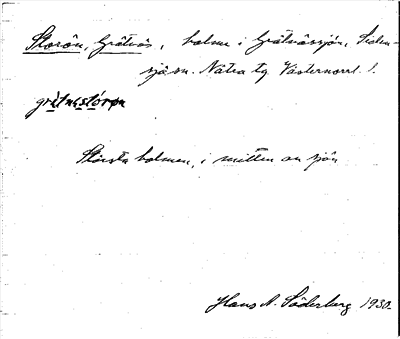 Storön, Grötnäs, holme i Grötnässjön, Siden-
sjö sn. Nätra tg Västernorrl. l.
grötnestórøn
Största holmen, i mitten av sjön
Hans N. Söderberg 1930.